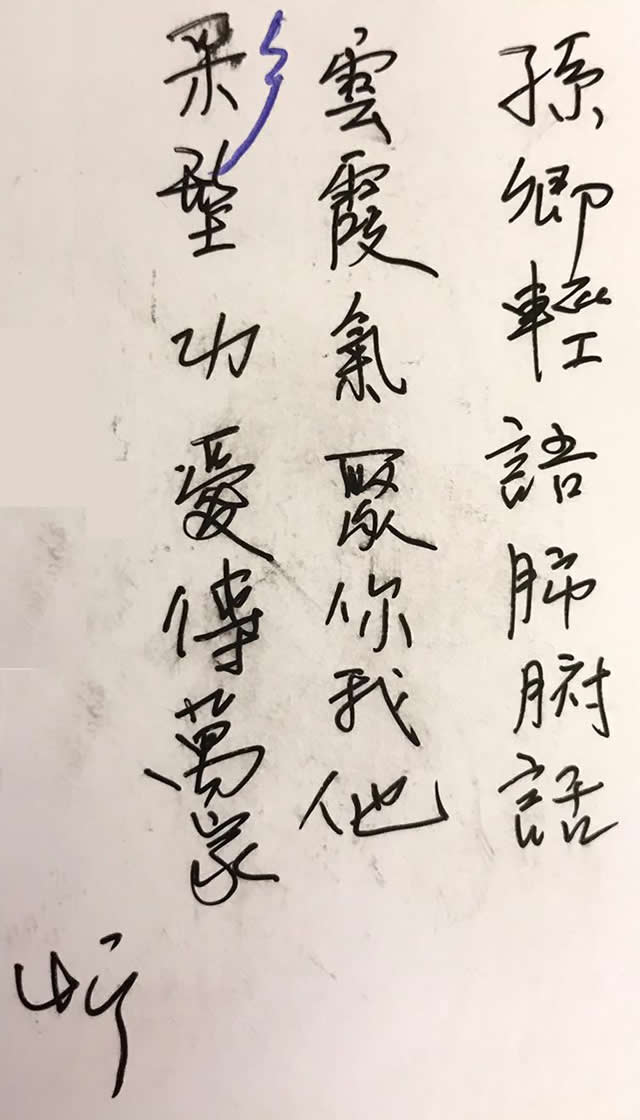 孫卿輕語肺腑話
雲霞氣聚你我他
彩功愛傳萬家